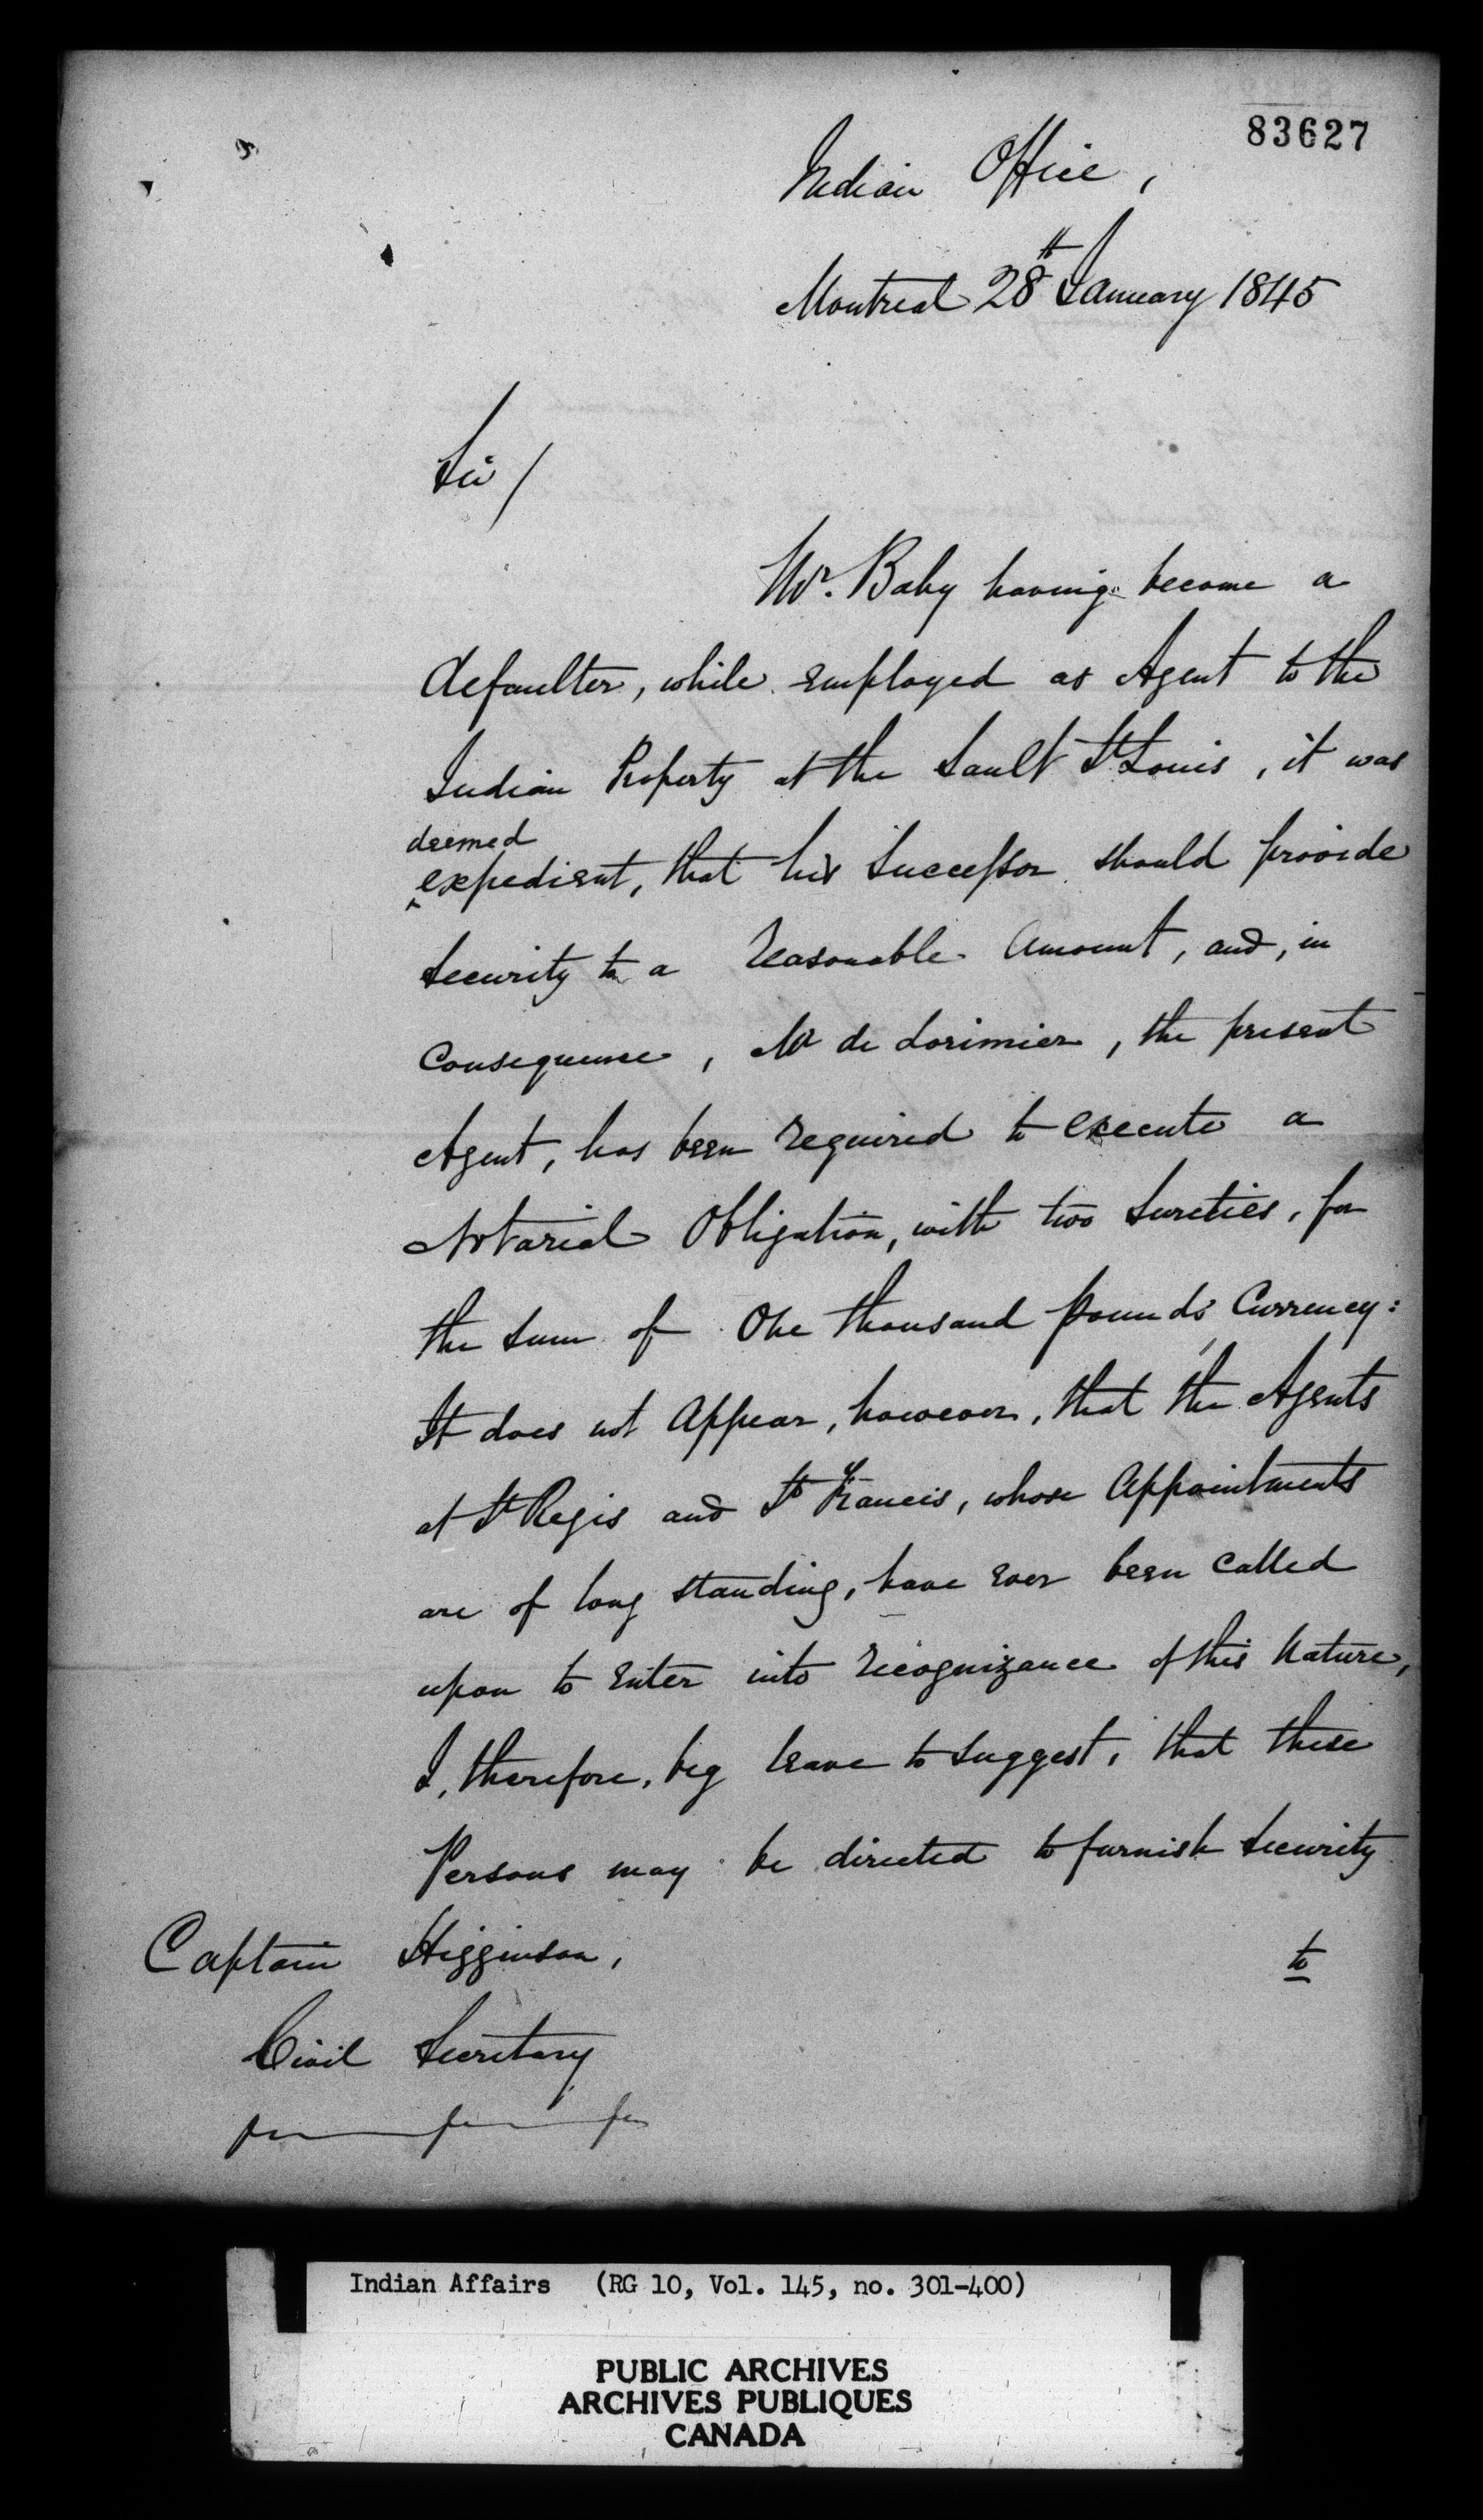 83627
Indian Office,
Montreal 28th January 1845
Sir/
Mr. Baby having become a
defaulter, while employed as Agent to the
Indian Property at the Sault St Louis, it was
deemed
expedient, that his Successor should provide
Security to a reasonable Amount, and, in
Consequence, Mr de Lorimier, the present
Agent, has been required to execute a
Notarial Obligation, with two Sureties, for
the Sum of One thousand pounds Currency:
It does not Appear, however, that the Agents
at St Regis and St Francis, whose Appointments
are of long standing, have ever been Called
upon to Enter into recognizance of this Nature,
I, therefore, beg leave to Suggest, that these
Persons may be directed to furnish Security
Captain Higginson,
to
Civil Secretary
Indian Affairs (RG 10, Vol. 145, no. 301-400)
PUBLIC ARCHIVES
ARCHIVES PUBLIQUES
CANADA